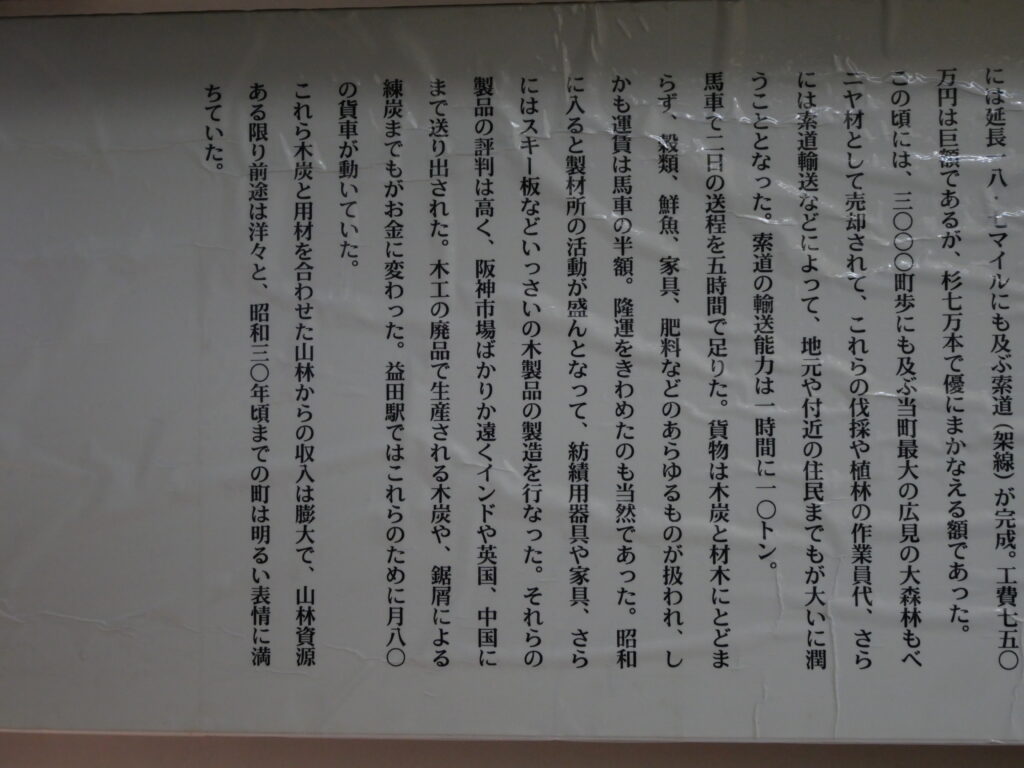 には延長一八・七マイルにも及ぶ索道（架線）が完成。工費七五〇
万円は巨額であるが、杉七万本で優にまかなえる額であった。
この頃には、三〇〇〇町歩にも及ぶ当町最大の広見の大森林もベ
ニヤ材として売却されて、これらの伐採や植林の作業員代、さら
には索道輸送などによって、地元や付近の住民までもが大いに潤
うこととなった。索道の輸送能力は一時間に一〇トン。
馬車で二日の送程を五時間で足りた。貨物は木炭と材木にとどま
らず、穀類、鮮魚、家具、肥料などのあらゆるものが扱われ、し
かも運賃は馬車の半額。隆運をきわめたのも当然であった。昭和
に入ると製材所の活動が盛んとなって、紡績用器具や家具、さら
にはスキー板などいっさいの木製品の製造を行なった。それらの
製品の評判は高く、阪神市場ばかりか遠くインドや英国、中国に
まで送り出された。木工の廃品で生産される木炭や、鋸屑による
練炭までもがお金に変わった。益田駅ではこれらのために月八〇
の貨車が動いていた。
これら木炭と用材を合わせた山林からの収入は膨大で、山林資源
ある限り前途は洋々と、昭和三〇年頃までの町は明るい表情に満
ちていた。